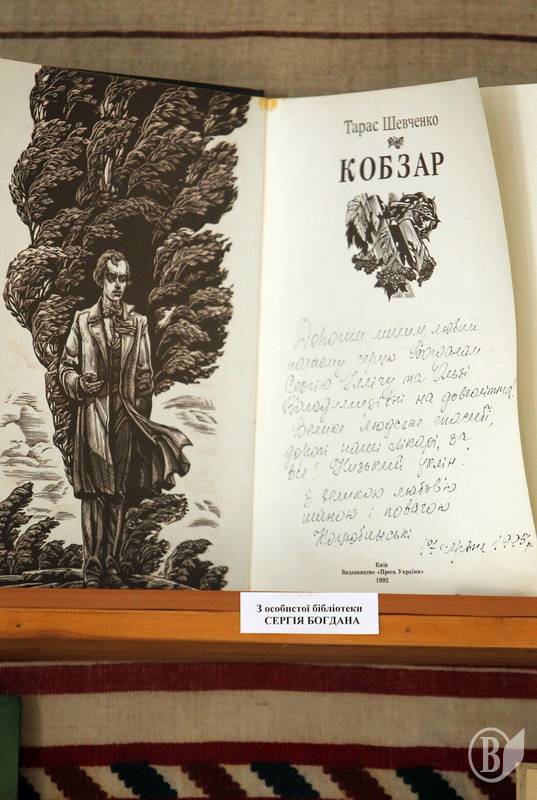 Тарас Шевченко
КОБЗАР
Дорогим, милим, любим
нашому серцю Богданам –
Сергію Іллічу та Ользі
Володимирівні на довголіття!
Велике людське спасибі,
дорогі наші лікарі, за
все! Низький уклін!
З великою любов'ю
шаною і повагою
Коцюбинські
17 1995р.
Київ
Видавництво «Преса України»
1992
З особистої бібліотеки
СЕРГІЯ БОГДАНА
В